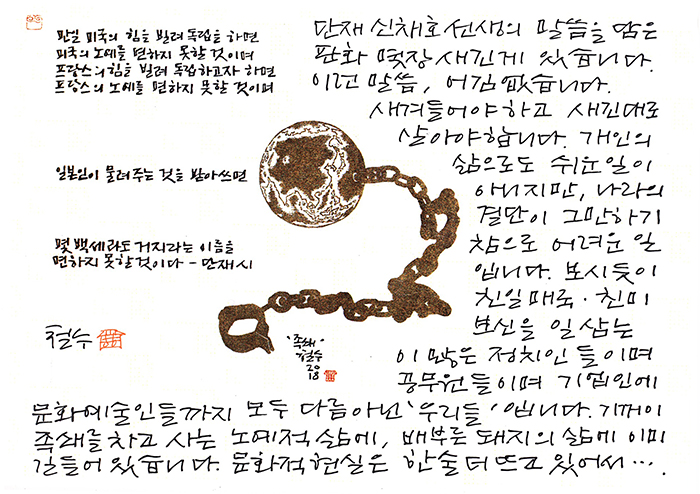 만일 미국의 힘을 빌려 독립을 하면
미국의 노예를 면하지 못할 것이며
프랑스의 힘을 빌려 독립하고자 하면
프랑스의 노예를 면하지 못할 것이며
일본인이 물려주는 것을 받아쓰면
몇 백세라도 거지라는 이름을
면하지 못할 것이다 - 단재시
철수
'족쇄'
철수
2018
단재 신채호 선생의 말씀을 담은
판화 몇장 새긴게 있습니다.
이런 말씀, 어김없습니다.
새겨들어야하고 새긴대로
살아야합니다. 개인의
삶으로도 쉬운일이
아니지만, 나라의
결단이 그만하기
참으로 어려운 일
입니다. 보시듯이
친일매국·친미
보신을 일삼는
이 많은 정치인들이며
공무원들이며 기업인에
문화예술인들까지 모두 다름아닌 '우리들' 입니다. 기꺼이
족쇄를 차고 사는 노예적 삶에, 배부른 돼지의 삶에 이미
길들어 있습니다. 문화적현실은 한술 더 뜨고 있어서….